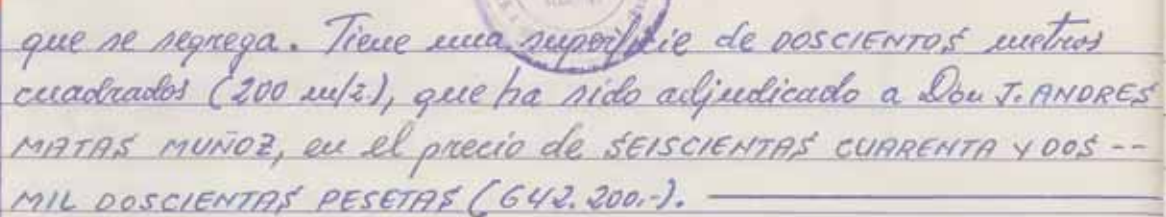 que se segrega. Tiene una superficie de DOSCIENTOS metros
cuadrados (200 m/2), que ha sido adjudicado a Don J. ANDRES
MATAS MUÑOZ, en el precio de SEISCIENTAS CUARENTA Y DOS --
MIL DOSCIENTAS PESETAS (642.200.-).